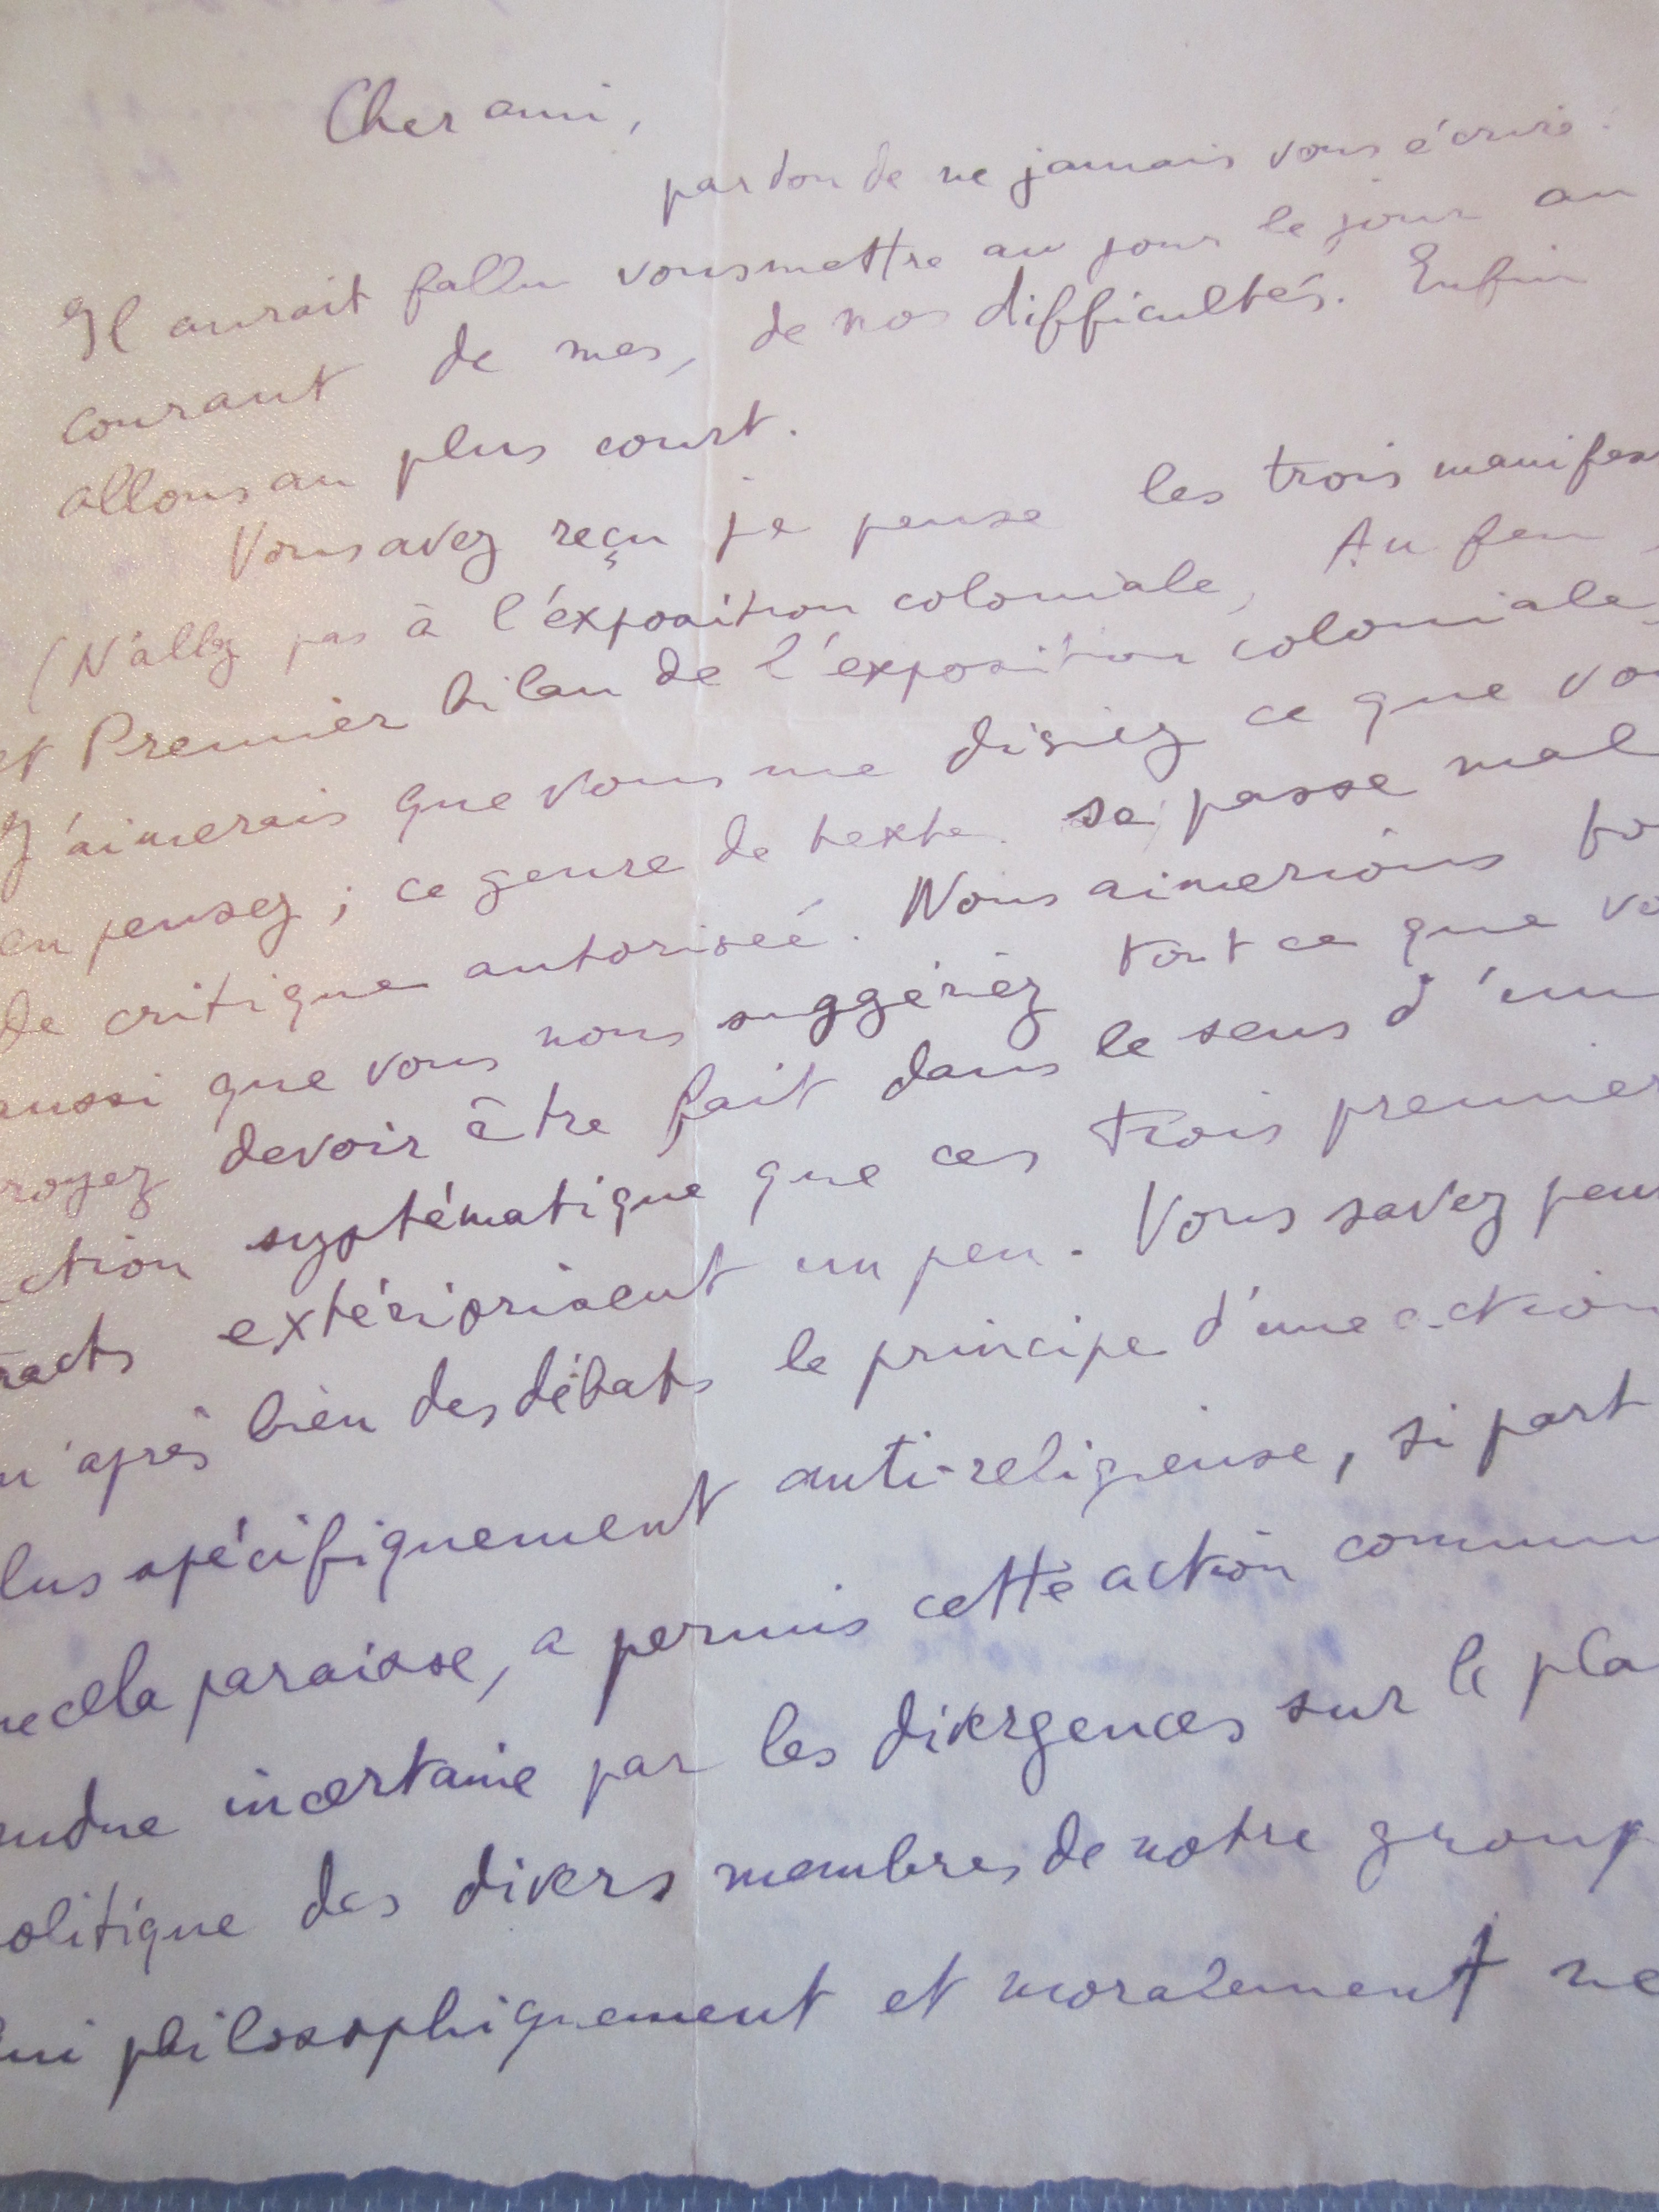 Cher ami,
pardon de ne jamais vous écrire.
Il aurait fallu vous mettre au jour le jour au
courant de mes, de nos difficultés. Enfin
allons au plus court.
Vous avez reçu je pense les trois manifes
(N'allez pas à l'exposition coloniale, Au feu,
et Premier bilan de l'exposition coloniale,
J'aimerais que vous me disiez ce que vou
en pensez; ce genre de texte se passe mal
de critique autorisée. Nous aimerions fo
aussi que vous nous suggériez tout ce que vo
royez devoir être fait dans le sens d'un
ction systématique que ces trois premier
racts extériorisent un peu. Vous savez peu
u'après bien des débats le principe d'une action
lus spécifiquement anti-religieuse, si part
ue cela paraisse, a permis cette action commun
endue incertaine par les divergences sur le pla
olitique des divers membres de notre group
ui philosophiquement et moralement ne